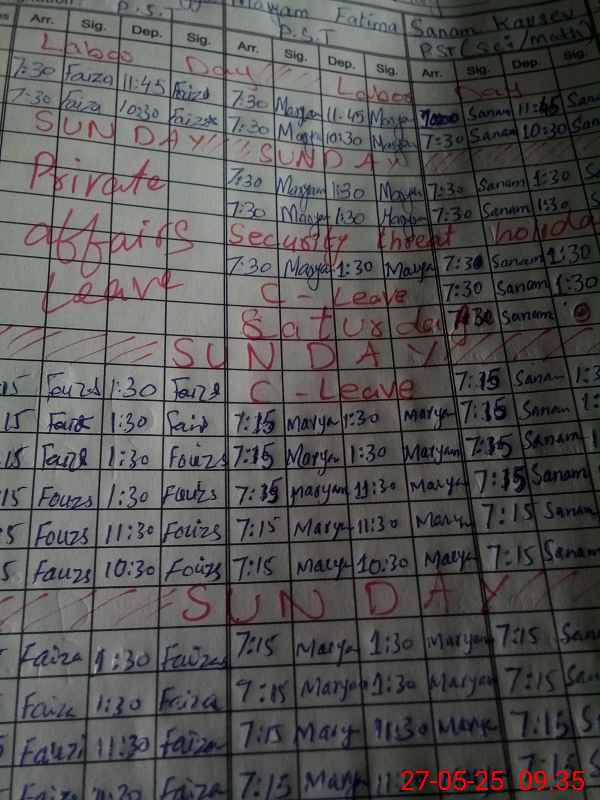 P.S.T Maryam Fatima Sanam Kausev
P.S.T PST (Sci/math)
Arr. Sig. Dep. Sig. Arr. Sig. Dep. Sig. Arr. Sig. Dep. Sig.
Laboo Day Laboo Day
7:30 Faiza 11:45 Faiza 7:30 Maryam 11:45 Maryam Sanam 11:45 San
7:30 Faiza 10:30 Faiza 7:30 Maryam 10:30 Maryam 7:30 Sanam 10:30 San
SUNDAY SUNDAY
Private 7:30 Maryam 1:30 Maryam 7:30 Sanam 1:30
7:30 Maryam 1:30 Maryam 7:30 Sanam 1:30
affairs Security threat holida
7:30 Maryam 1:30 Marya 7:30 Sanam 1:30
Leave C-Leave 7:30 Sanam 1:30
Saturday 7:30 Sanam
SUNDAY
:15 Fouzs 1:30 Faiza C-Leave 7:15 Sanam 1:3
:15 Faiz 1:30 Faiz 7:15 Marya 1:30 Marya 7:15 Sanam 1:
:15 Faiz 1:30 Fouzs 7:15 Marya 1:30 Maryam 7:15 Sanam
:15 Fouzs 1:30 Fouzs 7:15 Maryam 11:30 Marya 7:15 Sanam
:5 Fouzs 11:30 Fouzs 7:15 Marya 11:30 Mary 7:15 Sanam
5 Fauzs 10:30 Fouzs 7:15 Marya 10:30 Marya 7:15 Sanam
SUNDAY
Faiza 1:30 Faiza 7:15 Marya 1:30 Maryam 7:15 Sana
Faiza 1:30 Faiza 7:15 Maryam 1:30 Maryam 7:15 San
Fauzi 11:30 Faiza 7:15 Mary 11:30 Mary 7:15 S
Faiza 11:30 Faiza 7:15 Mary 11 7:15
27-05-25 09:35